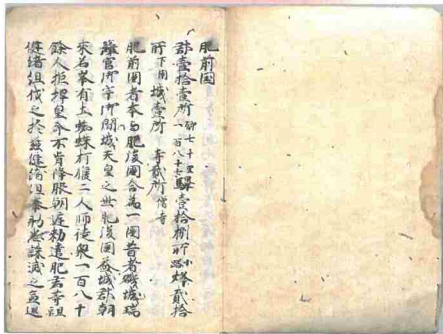 肥前國
郡壹拾壹所 郷七十里一百八十七 驛壹拾捌所 小路 烽貳拾
所下國城壹所 寺貳所 僧寺
肥前國者本与肥後國合為一國昔者磯城瑞
籬宮御宇御間城天皇之世肥後國益城郡朝
来名峯有土蜘蛛打猴二人帥徒衆一百八十
餘人拒捍皇命不肯降服朝廷勅遣肥君等祖
健緒組伐之於茲健緒組奉勅悉誅滅之兼巡